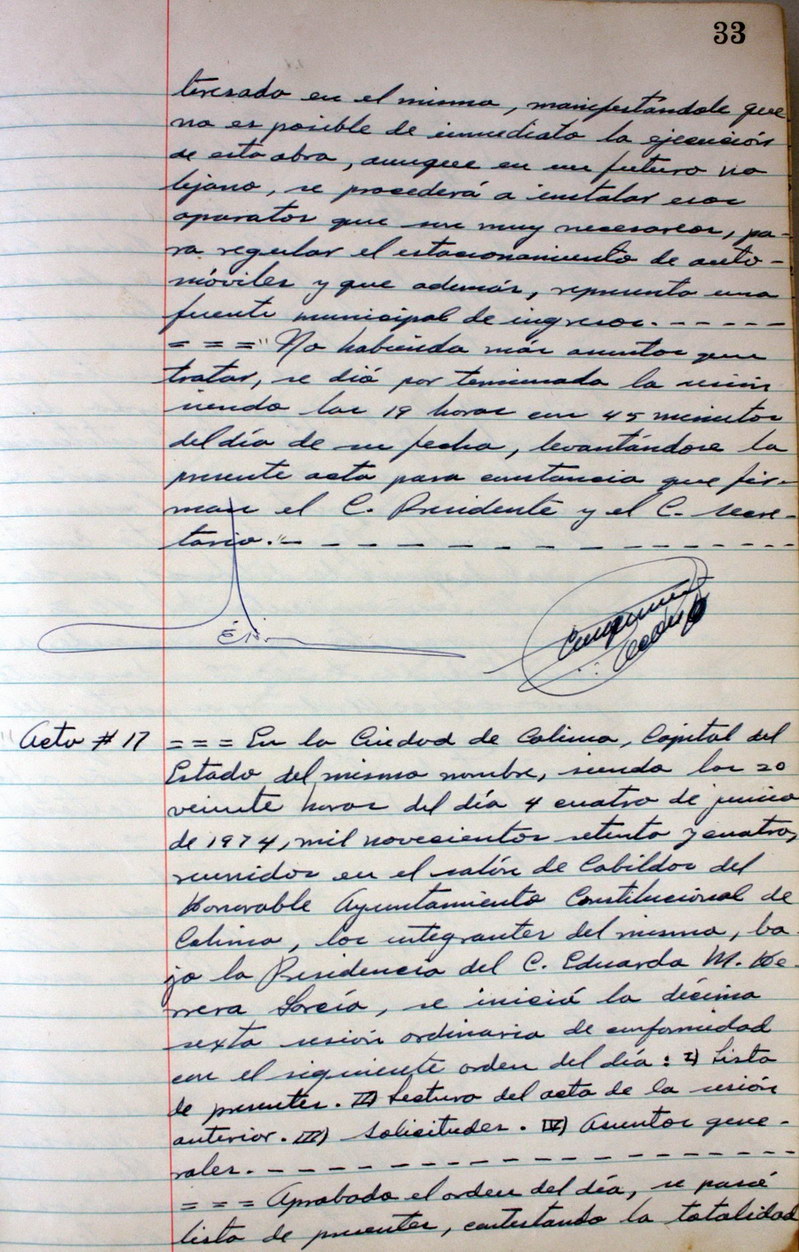 33
teresado en el mismo, manifestándole que
no es posible de inmediato la ejecución
de esta obra, aunque en un futuro no
lejano, se procederá a instalar esos
aparatos que son muy necesarios, pa-
ra regular el estacionamiento de auto-
móviles y que además, representa una
fuente municipal de ingresos.------
==="No habiendo más asuntos que
tratar, se dió por terminada la sesión
siendo las 19 horas con 45 minutos
del día de su fecha, levantándose la
presente acta para constancia que fir-
man el C. Presidente y el C. Secre-
tario."---------------
Acta #17 === En la Ciudad de Colima, Capital del
Estado del mismo nombre, siendo las 20
veinte horas del día 4 cuatro de junio
de 1974, mil novecientos setenta y cuatro,
reunidos en el salón de Cabildos del
Honorable Ayuntamiento Constitucional de
Colima, los integrantes del mismo, ba-
jo la Presidencia del C. Eduardo M. He-
rrera García, se inició la décima
sexta sesión ordinaria de conformidad
con el siguiente orden del día: I) Lista
de presentes. II) Lectura del acta de la sesión
anterior. III) Solicitudes. IV) Asuntos gene-
rales.----------------
=== Aprobado el orden del día, se pasó
lista de presentes, contestando la totalidad